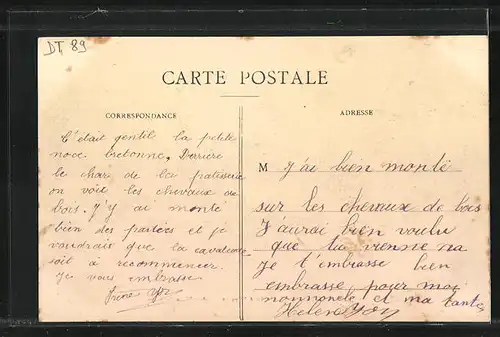 DT 89
CARTE POSTALE
CORRESPONDANCE
C'était gentil la petite
noce bretonne, Derrière
le char de la patisserie
on voit les chevaux de
bois. J'y ai monté
bien des parties et je
voudrais que la cavalcade
soit à recommencer.
Je vous embrasse
ADRESSE
M J'ai bien monté
sur les chevaux de bois
J'aurai bien voulu
que tu vienne
Je t'embrasse bien
embrasse pour moi
et ma tante
Helene